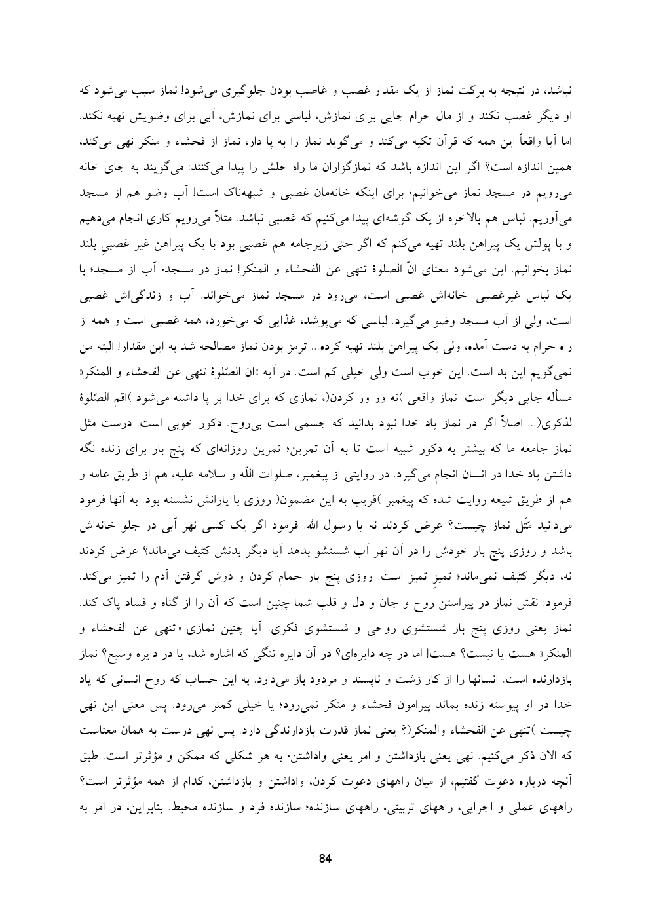 نباشد، در نتیجه به برکت نماز از یک مقدار غصب و غاصب بودن جلوگیری می‌شود! نماز سبب می‌شود که
او دیگر غصب نکند و از مال حرام جایی برای نمازش، لباسی برای نمازش، آبی برای وضویش تهیه نکند.
اما آیا واقعاً این همه که قرآن تکیه می‌کند و می‌گوید نماز را به پا دار، نماز از فحشاء و منکر نهی می‌کند،
همین اندازه است؟ اگر این اندازه باشد که نمازگزاران ما راه حلش را پیدا می‌کنند: می‌گویند به جای خانه
می‌رویم در مسجد نماز می‌خوانیم؛ برای اینکه خانه‌مان غصبی و شبهه‌ناک است! آب وضو هم از مسجد
می‌آوریم. لباس هم بالاخره از یک گوشه‌ای پیدا می‌کنیم که غصبی نباشد. مثلاً می‌رویم کاری انجام می‌دهیم
و با پولش یک پیراهن بلند تهیه می‌کنم که اگر حتی زیرجامه هم غصبی بود با یک پیراهن غیر غصبی بلند
نماز بخوانیم. این می‌شود معنای انّ الصلوة تنهی عن الفحشاء و المنکر! نماز در مسجد، آب از مسجد؛ با
یک لباس غیرغصبی. خانه‌اش غصبی است، می‌رود در مسجد نماز می‌خواند. آب و زندگی‌اش غصبی
است، ولی از آب مسجد وضو می‌گیرد. لباسی که می‌پوشد، غذایی که می‌خورد، همه غصبی است و همه از
راه حرام به دست آمده، ولی یک پیراهن بلند تهیه کرده... ترمز بودن نماز مصالحه شد به این مقدار! البته من
نمی‌گویم این بد است. این خوب است ولی خیلی کم است. در آیه «انّ الصّلوة تنهی عن الفحشاء و المنکر»
مسأله جایی دیگر است. نماز واقعی )نه ور ور کردن(، نمازی که برای خدا بر پا داشته می‌شود )اقم الصّلوة
لذکری(... اصلاً اگر در نماز یاد خدا نبود بدانید که جسمی است بی‌روح. دکور خوبی است. درست مثل
نماز جامعه ما که بیشتر به دکور شبیه است تا به آن تمرین؛ تمرین روزانه‌ای که پنج بار برای زنده نگه
داشتن یاد خدا در انسان انجام می‌گیرد. در روایتی از پیغمبر، صلوات الله و سلامه علیه، هم از طریق عامه و
هم از طریق شیعه روایت شده که پیغمبر )قریب به این مضمون( روزی با یارانش نشسته بود. به آنها فرمود
می‌دانید مَثَل نماز چیست؟ عرض کردند نه یا رسول الله. فرمود اگر یک کسی نهر آبی در جلو خانه‌اش
باشد و روزی پنج بار خودش را در آن نهر آب شستشو بدهد آیا دیگر بدنش کثیف می‌ماند؟ عرض کردند
نه، دیگر کثیف نمی‌ماند؛ تمیزِ تمیز است. روزی پنج بار حمام کردن و دوش گرفتن آدم را تمیز می‌کند.
فرمود: نقش نماز در پیراستن روح و جان و دل و قلب شما چنین است که آن را از گناه و فساد پاک کند.
نماز یعنی روزی پنج بار شستشوی روحی و شستشوی فکری. آیا چنین نمازی «تنهی عن الفحشاء و
المنکر» هست یا نیست؟ هست! اما در چه دایره‌ای؟ در آن دایره تنگی که اشاره شد، یا در دایره وسیع؟ نماز
بازدارنده است. انسانها را از کار زشت و ناپسند و مردود باز می‌دارد. به این حساب که روح انسانی که یاد
خدا در او پیوسته زنده بماند پیرامون فحشاء و منکر نمی‌رود؛ یا خیلی کمتر می‌رود. پس معنی این نهی
چیست )تنهی عن الفحشاء والمنکر(؟ یعنی نماز قدرت بازدارندگی دارد. پس نهی درست به همان معناست
که الان ذکر می‌کنیم. نهی یعنی بازداشتن و امر یعنی واداشتن، به هر شکلی که ممکن و مؤثرتر است. طبق
آنچه درباره دعوت گفتیم، از میان راههای دعوت کردن، واداشتن و بازداشتن، کدام از همه مؤثرتر است؟
راههای عملی و اجرایی، راههای تربیتی، راههای سازنده؛ سازنده فرد و سازنده محیط. بنابراین، در امر به
84